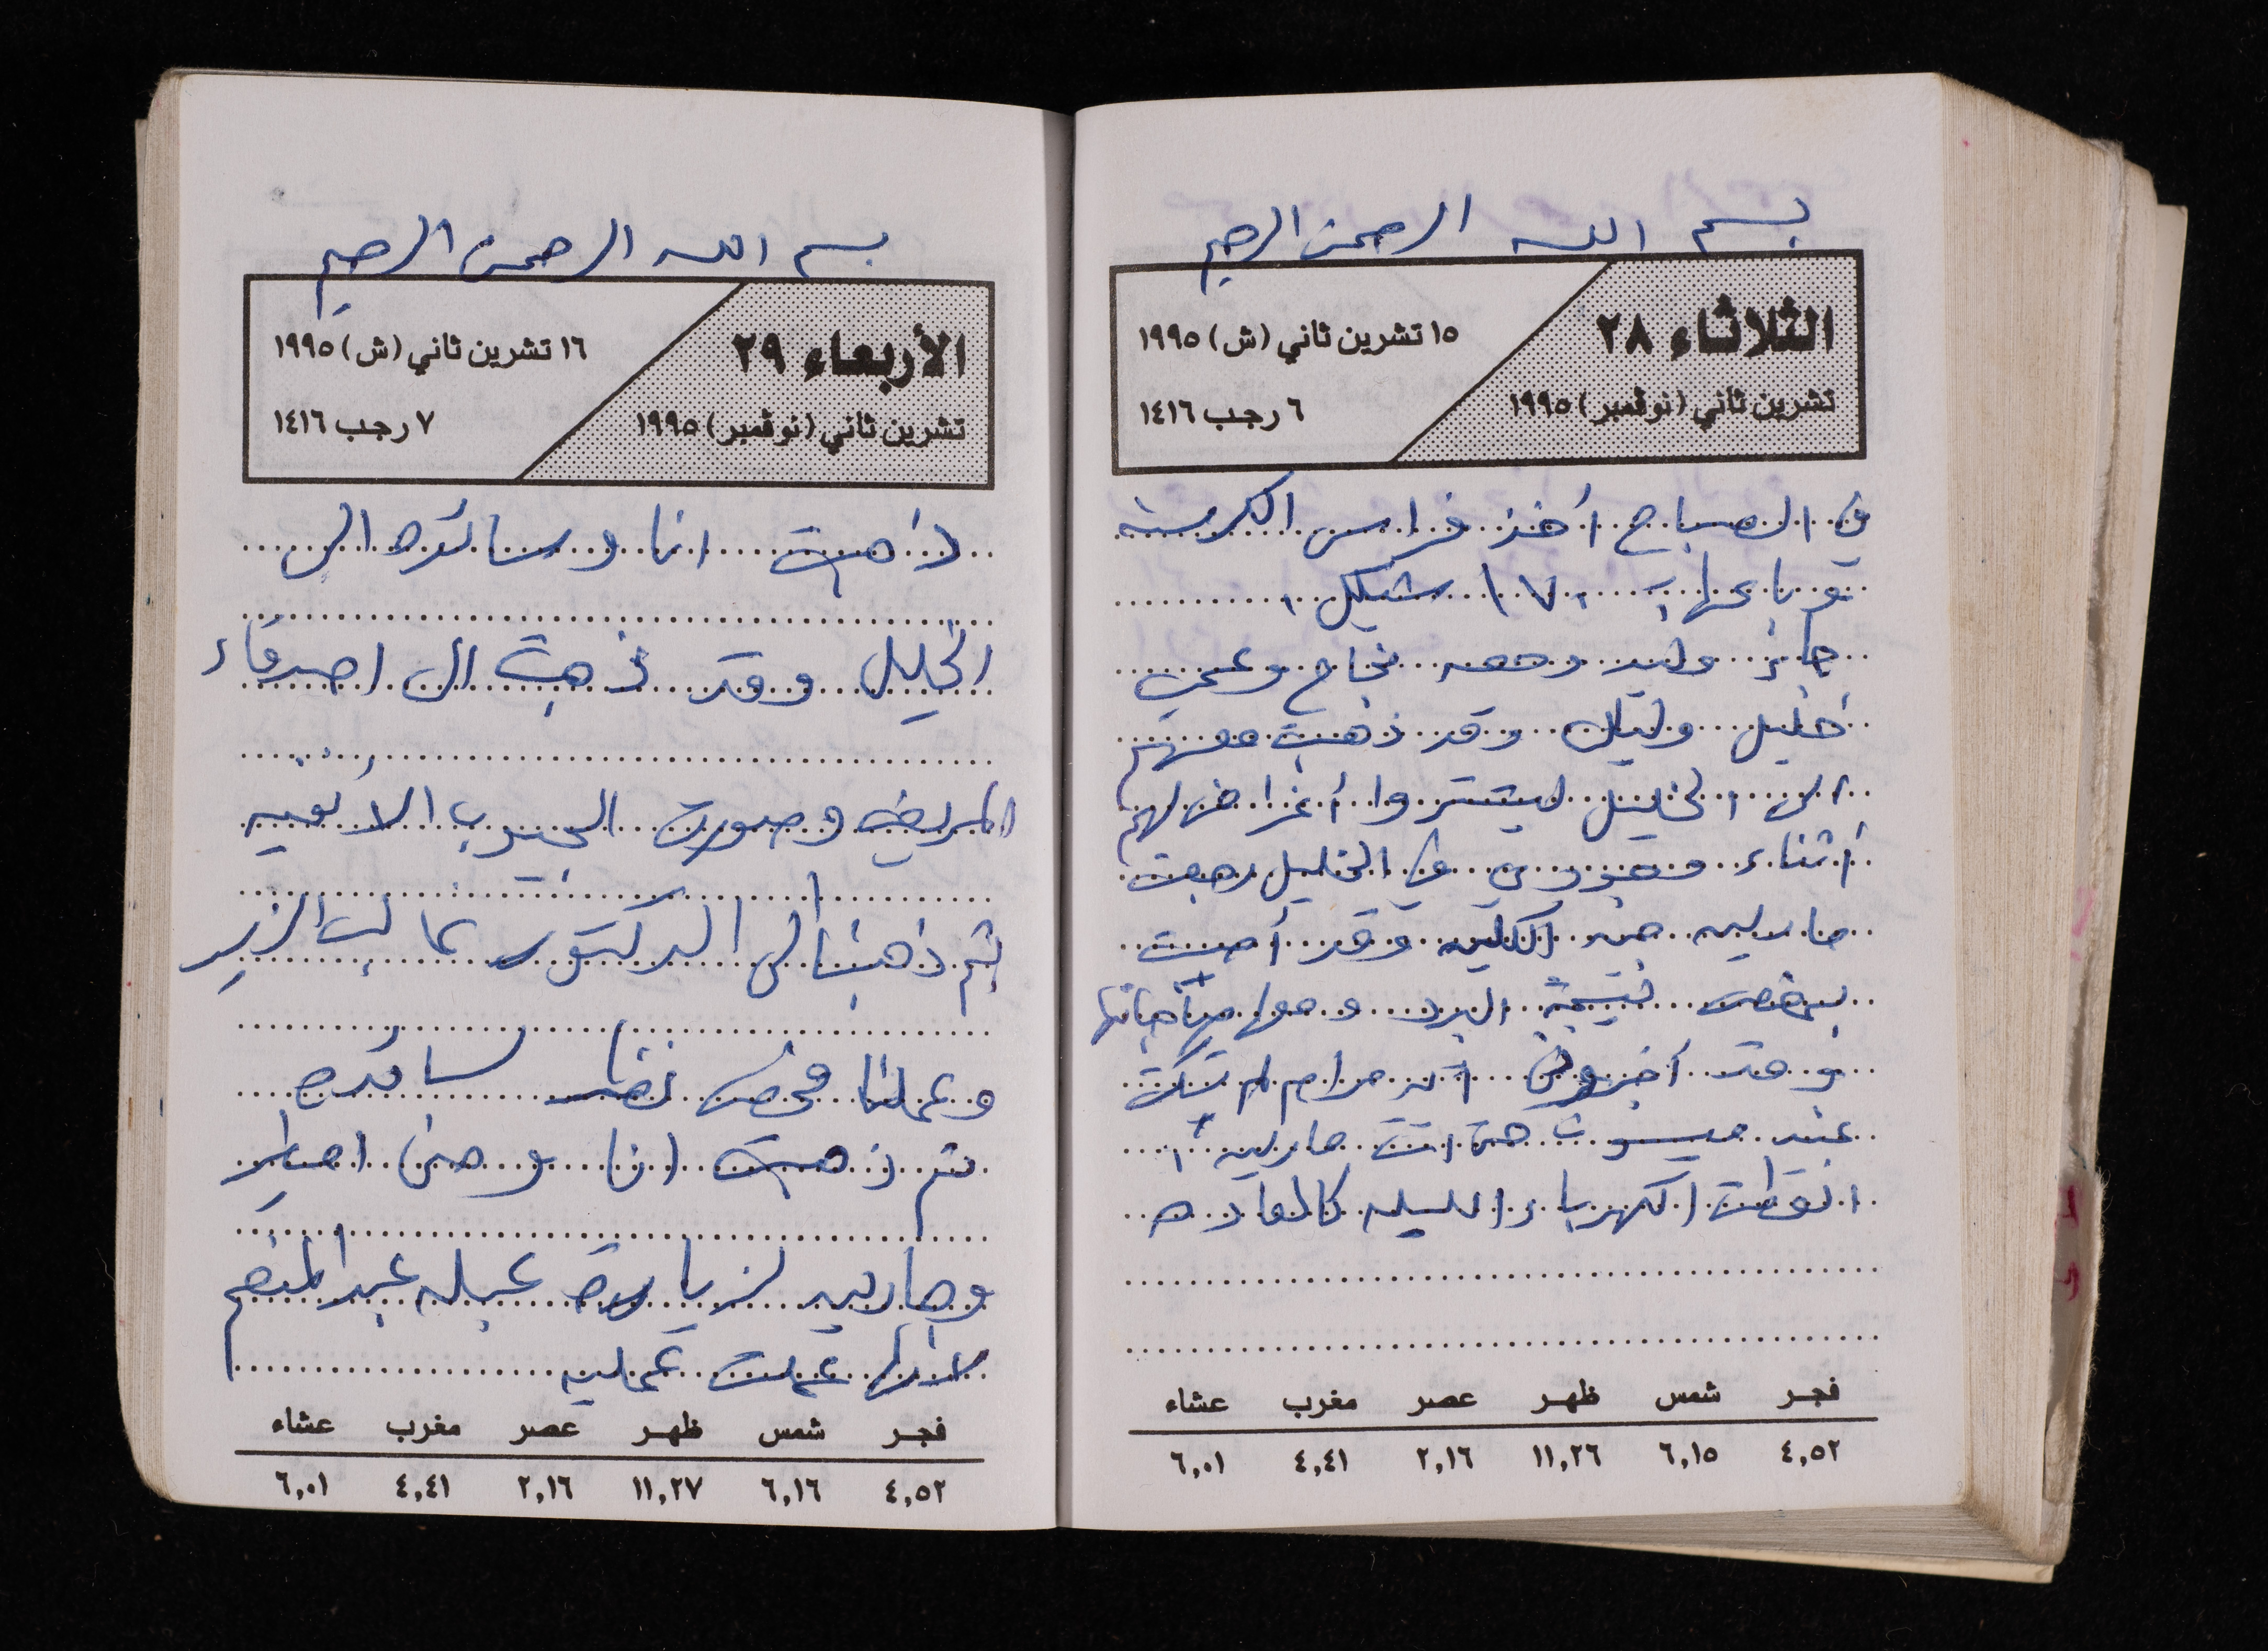 بسم الله الرحمن الرحيم
الثلاثاء ٢٨
تشرين ثاني (نوڤمبر) ١٩٩٥
١٥ تشرين ثاني (ش) ١٩٩٥
٦ رجب ١٤١٦
في الصباح أخذ فراس الكرسنه
وباعها بـ ١٧٠ شيكل
جائز وليد ومعه نجاح وعمتي
خليل وليلى وقد ذهبت معهم
الى الخليل ليشتروا أغراض لهم
أثناء وجودي في الخليل رجعت
ماريه من الكليه وقد أصيبت
بمغص نتيجة البرد
وقد أخبروني أن مرام لم تكن
عند ميسون حتى أتت ماريه
انقطعت الكهرباء الليله كالعاده
فجر شمس ظهر عصر مغرب عشاء
٤,٥٢ ٦,١٥ ١١,٢٦ ٢,١٦ ٤,٤١ ٦,٠١
بسم الله الرحمن الرحيم
الأربعاء ٢٩
تشرين ثاني (نوڤمبر) ١٩٩٥
١٦ تشرين ثاني (ش) ١٩٩٥
٧ رجب ١٤١٦
ذهبت انا وسائده الى
الخليل وقد ذهبت الى اصدقاء
المريض وصورت الجيوب الأنفيه
ثم ذهبنا الى الدكتور الزير
وعملنا فحص نظر لسائده
ثم ذهبت انا و
وماريه لزيارة عبله عبد المنعم
لانها عملت عمليه
فجر شمس ظهر عصر مغرب عشاء
٤,٥٢ ٦,١٦ ١١,٢٧ ٢,١٦ ٤,٤١ ٦,٠١